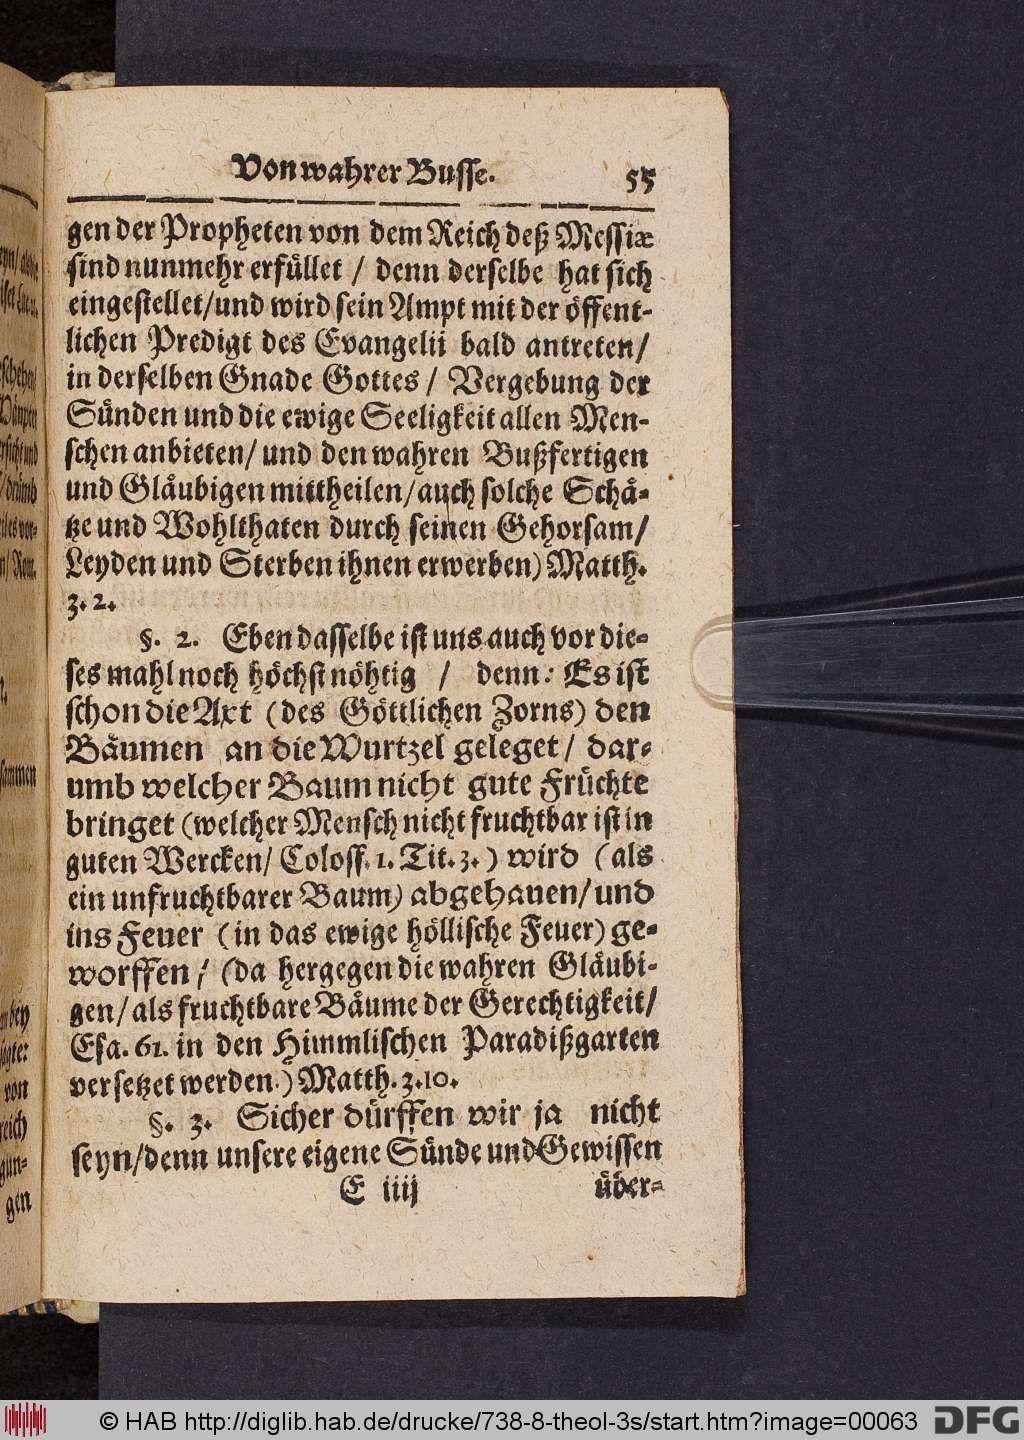 Von wahrer Busse. 55
gen der Propheten von dem Reich deß Messiæ
sind nunmehr erfüllet / denn derselbe hat sich
eingestellet/und wird sein Ampt mit der öffent-
lichen Predigt des Evangelii bald antreten/
in derselben Gnade Gottes / Vergebung der
Sünden und die ewige Seeligkeit allen Men-
schen anbieten/ und den wahren Bußfertigen
und Gläubigen mittheilen/auch solche Schä-
tze und Wohlthaten durch seinen Gehorsam/
Leyden und Sterben ihnen erwerben) Matth.
3. 2.
§. 2. Eben dasselbe ist uns auch vor die-
ses mahl noch höchst nöhtig / denn: Es ist
schon die Axt (des Göttlichen Zorns) den
Bäumen an die Wurtzel geleget/ dar-
umb welcher Baum nicht gute Früchte
bringet (welcher Mensch nicht fruchtbar ist in
guten Wercken/ Coloss. 1. Tit. 3.) wird (als
ein unfruchtbarer Baum) abgehauen/und
ins Feuer (in das ewige höllische Feuer) ge-
worffen/ (da hergegen die wahren Gläubi-
gen/als fruchtbare Bäume der Gerechtigkeit/
Esa. 61. in den Himmlischen Paradißgarten
versetzet werden.) Matth. 3. 10.
§. 3. Sicher dürffen wir ja nicht
seyn/denn unsere eigene Sünde und Gewissen
E iiij über-
sammen
bey
von
reich
gen
© HAB http://diglib.hab.de/drucke/738-8-theol-3s/start.htm?image=00063 DFG